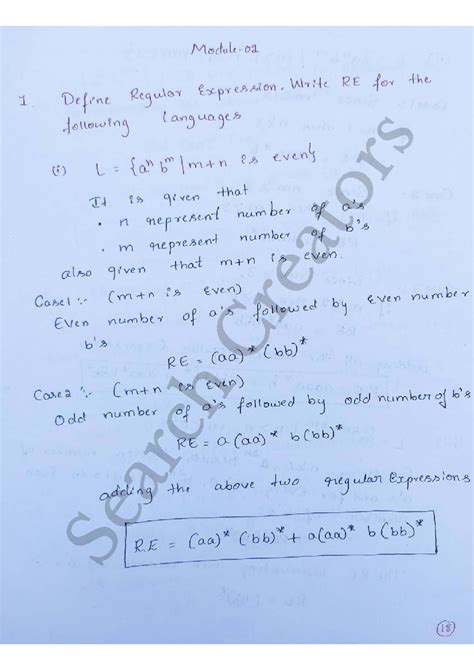 Module-02
1 Define Regular Expression. Write RE for the
following Languages
(i) L = {aⁿ bᵐ | m+n is even}
It is given that
• n represent number of a's
• m represent number of b's
also given that m+n is even.
Case1 :- (m+n is Even)
Even number of a's followed by Even number
b's
RE = (aa)* (bb)*
Case2 :- (m+n is Even)
Odd number of a's followed by odd number of b's
RE = a(aa)* b(bb)*
adding the above two regular Expressions
R.E = (aa)* (bb)* + a(aa)* b(bb)*
Search Creators
18